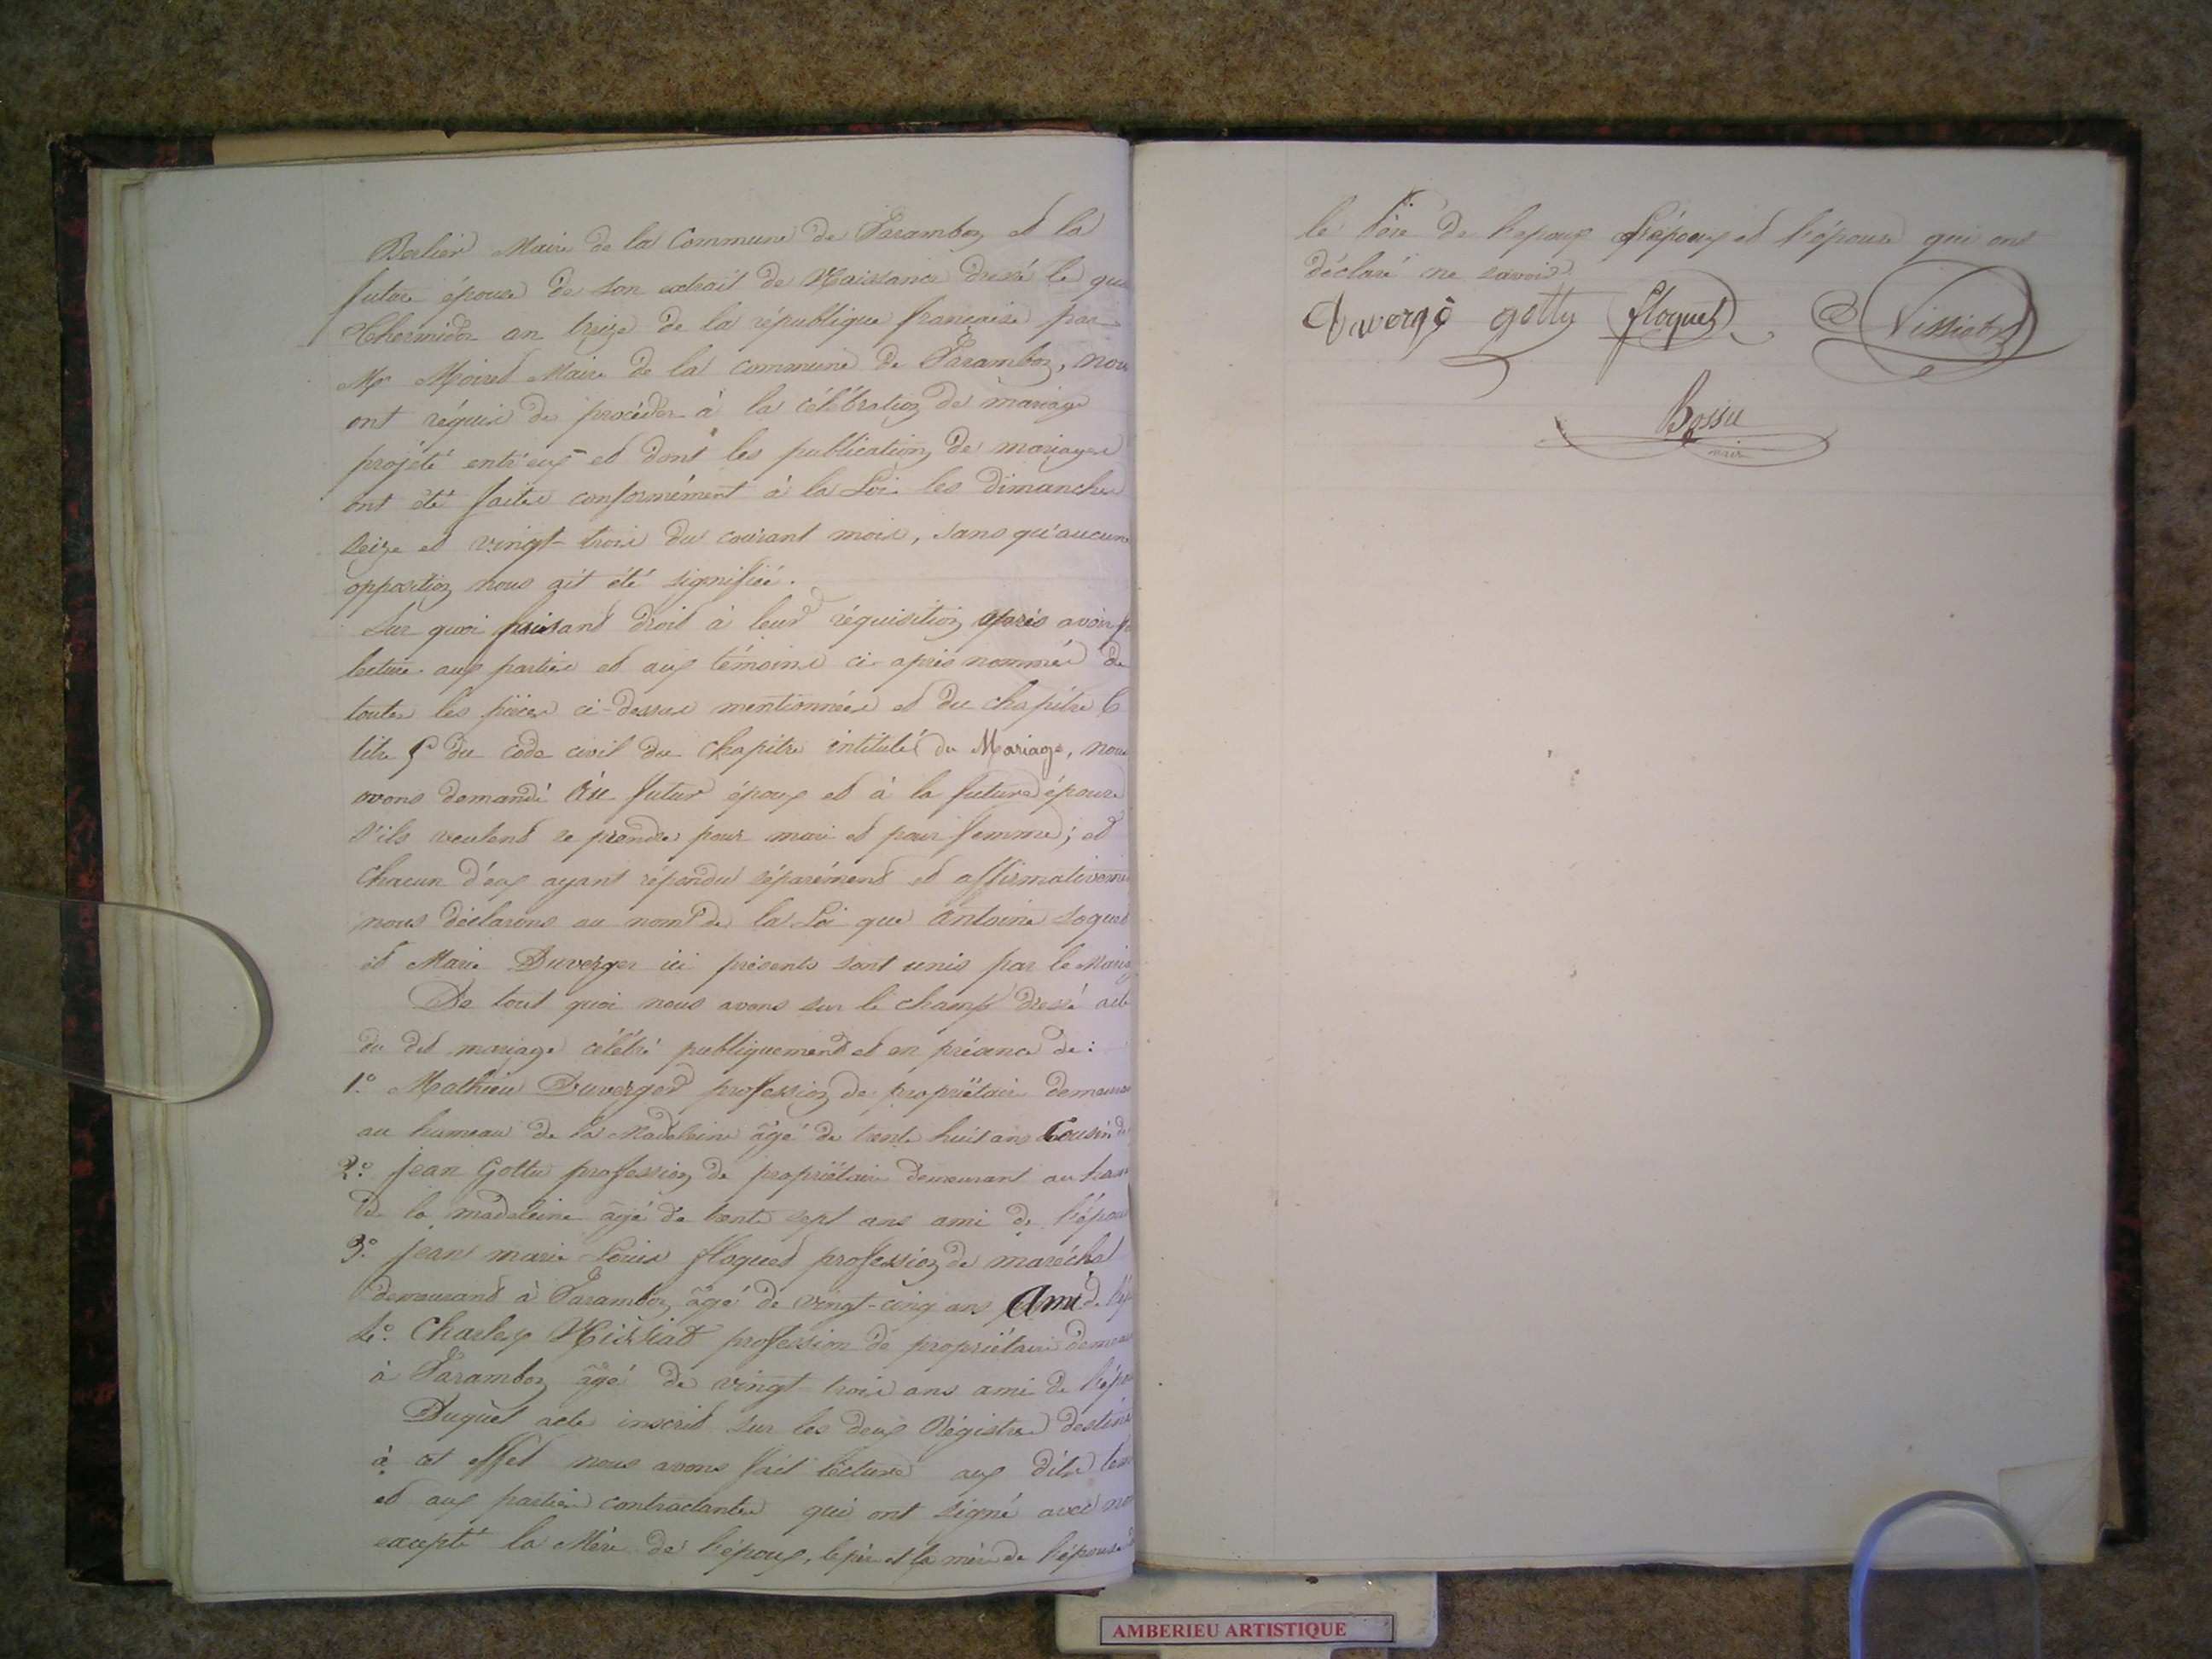 Berlier Maire de la Commune de Faramboz et la
future épouse de son extrait de Naissance dressé le qu
Thermidor an treize de la république française par
Mr Moiret Maire de la commune de Faramboz, nou
ont réquis de procéder à la célébration de mariage
projété entr'eux et dont les publications de mariages
ont été faites conformément à la Loi les dimanches
seize et vingt-trois du courant mois, sans qu'aucune
opposition nous ait été signifiée.
Sur quoi faisant droit à leur réquisition après avoir
lecture aux parties et aux témoins ci-après nommés de
toutes les pièces ci-dessus mentionnées et du chapitre 6
titre 5 du code civil du chapitre intitulé du Mariage, nous
avons demandé Au futur époux et à la future épouse
s'ils veulent se prendre pour mari et pour femme; et
chacun d'eux ayant répondu séparément et affirmativeme
nous déclarons au nom de la Loi que antoine
et Marie Duverger ici présents sont unis par le Mariag
De tout quoi nous avons sur le champ dressé acte
du dit mariage célébré publiquement et en présence de:
1.° Mathieu Duverger profession de propriétaire demeura
au hameau de la Madeleine âgé de trente huit ans Cousin de
2.° Jean Gottu profession de propriétaire demeurant au ham
de la madeleine âgé de trente sept ans ami de l'épou
3.° Jean marie Louis floquet profession de maréchal
demeurant à Faramboz âgé de vingt-cinq ans Ami de l'ép
4.° Charles profession de propriétaire demeu
à Faramboz âgé de vingt trois ans ami de l'épo
Duquel acte inscrit sur les deux Régistres destinés
à cet effet nous avons fait lecture aux dits tem
et aux parties contractantes qui ont signé avec no
excepté la Mère de l'époux, le père et la mère de l'épouse
le Père de l'epoux l'époux et l'épouse qui ont
déclaré ne savoir
Duvergé gottu floquet Vissiat
Bossu
maire
AMBERIEU ARTISTIQUE